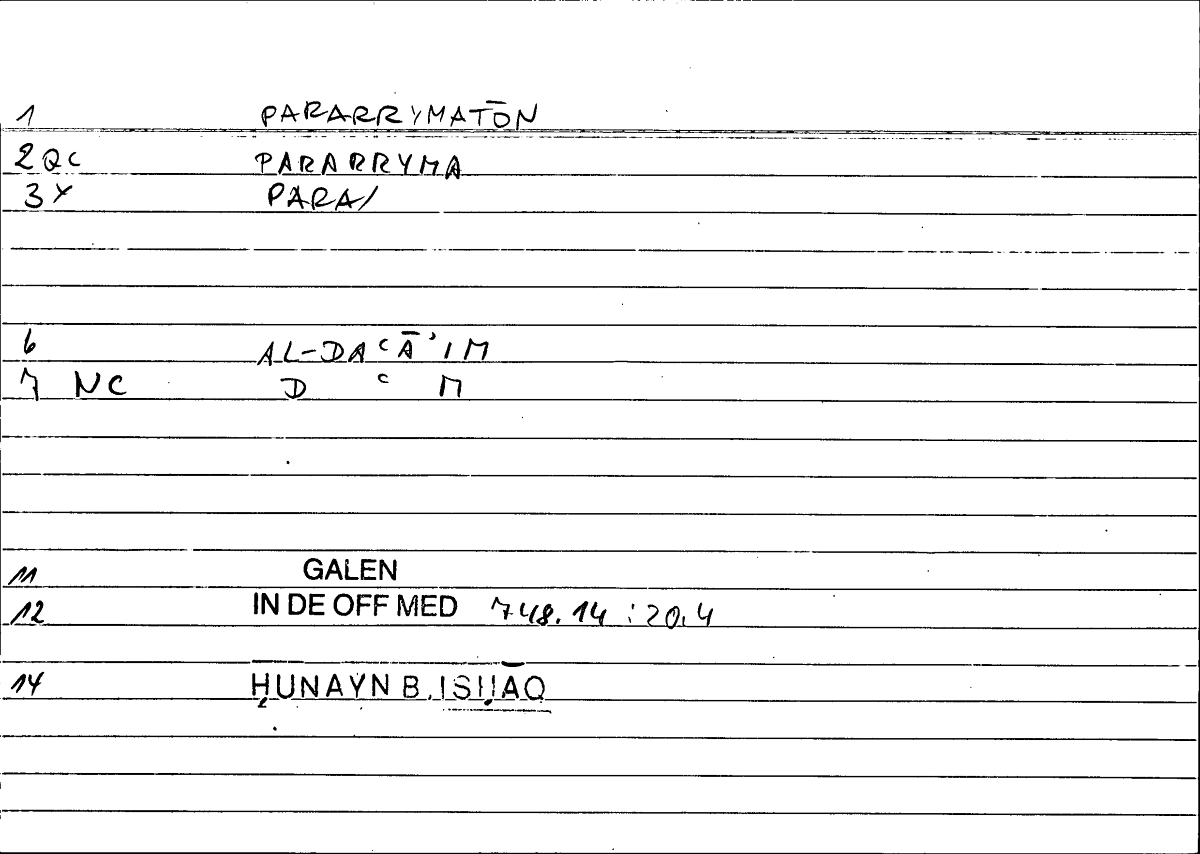 1 PARARRYMATŌN
2 QC PARARRYMA
3 Y PARA/
6 AL-DAʿĀʾIM
7 NC D ʿ M
11 GALEN
12 IN DE OFF MED 748.14 : 20.4
14 ḤUNAYN B. ISḤĀQ